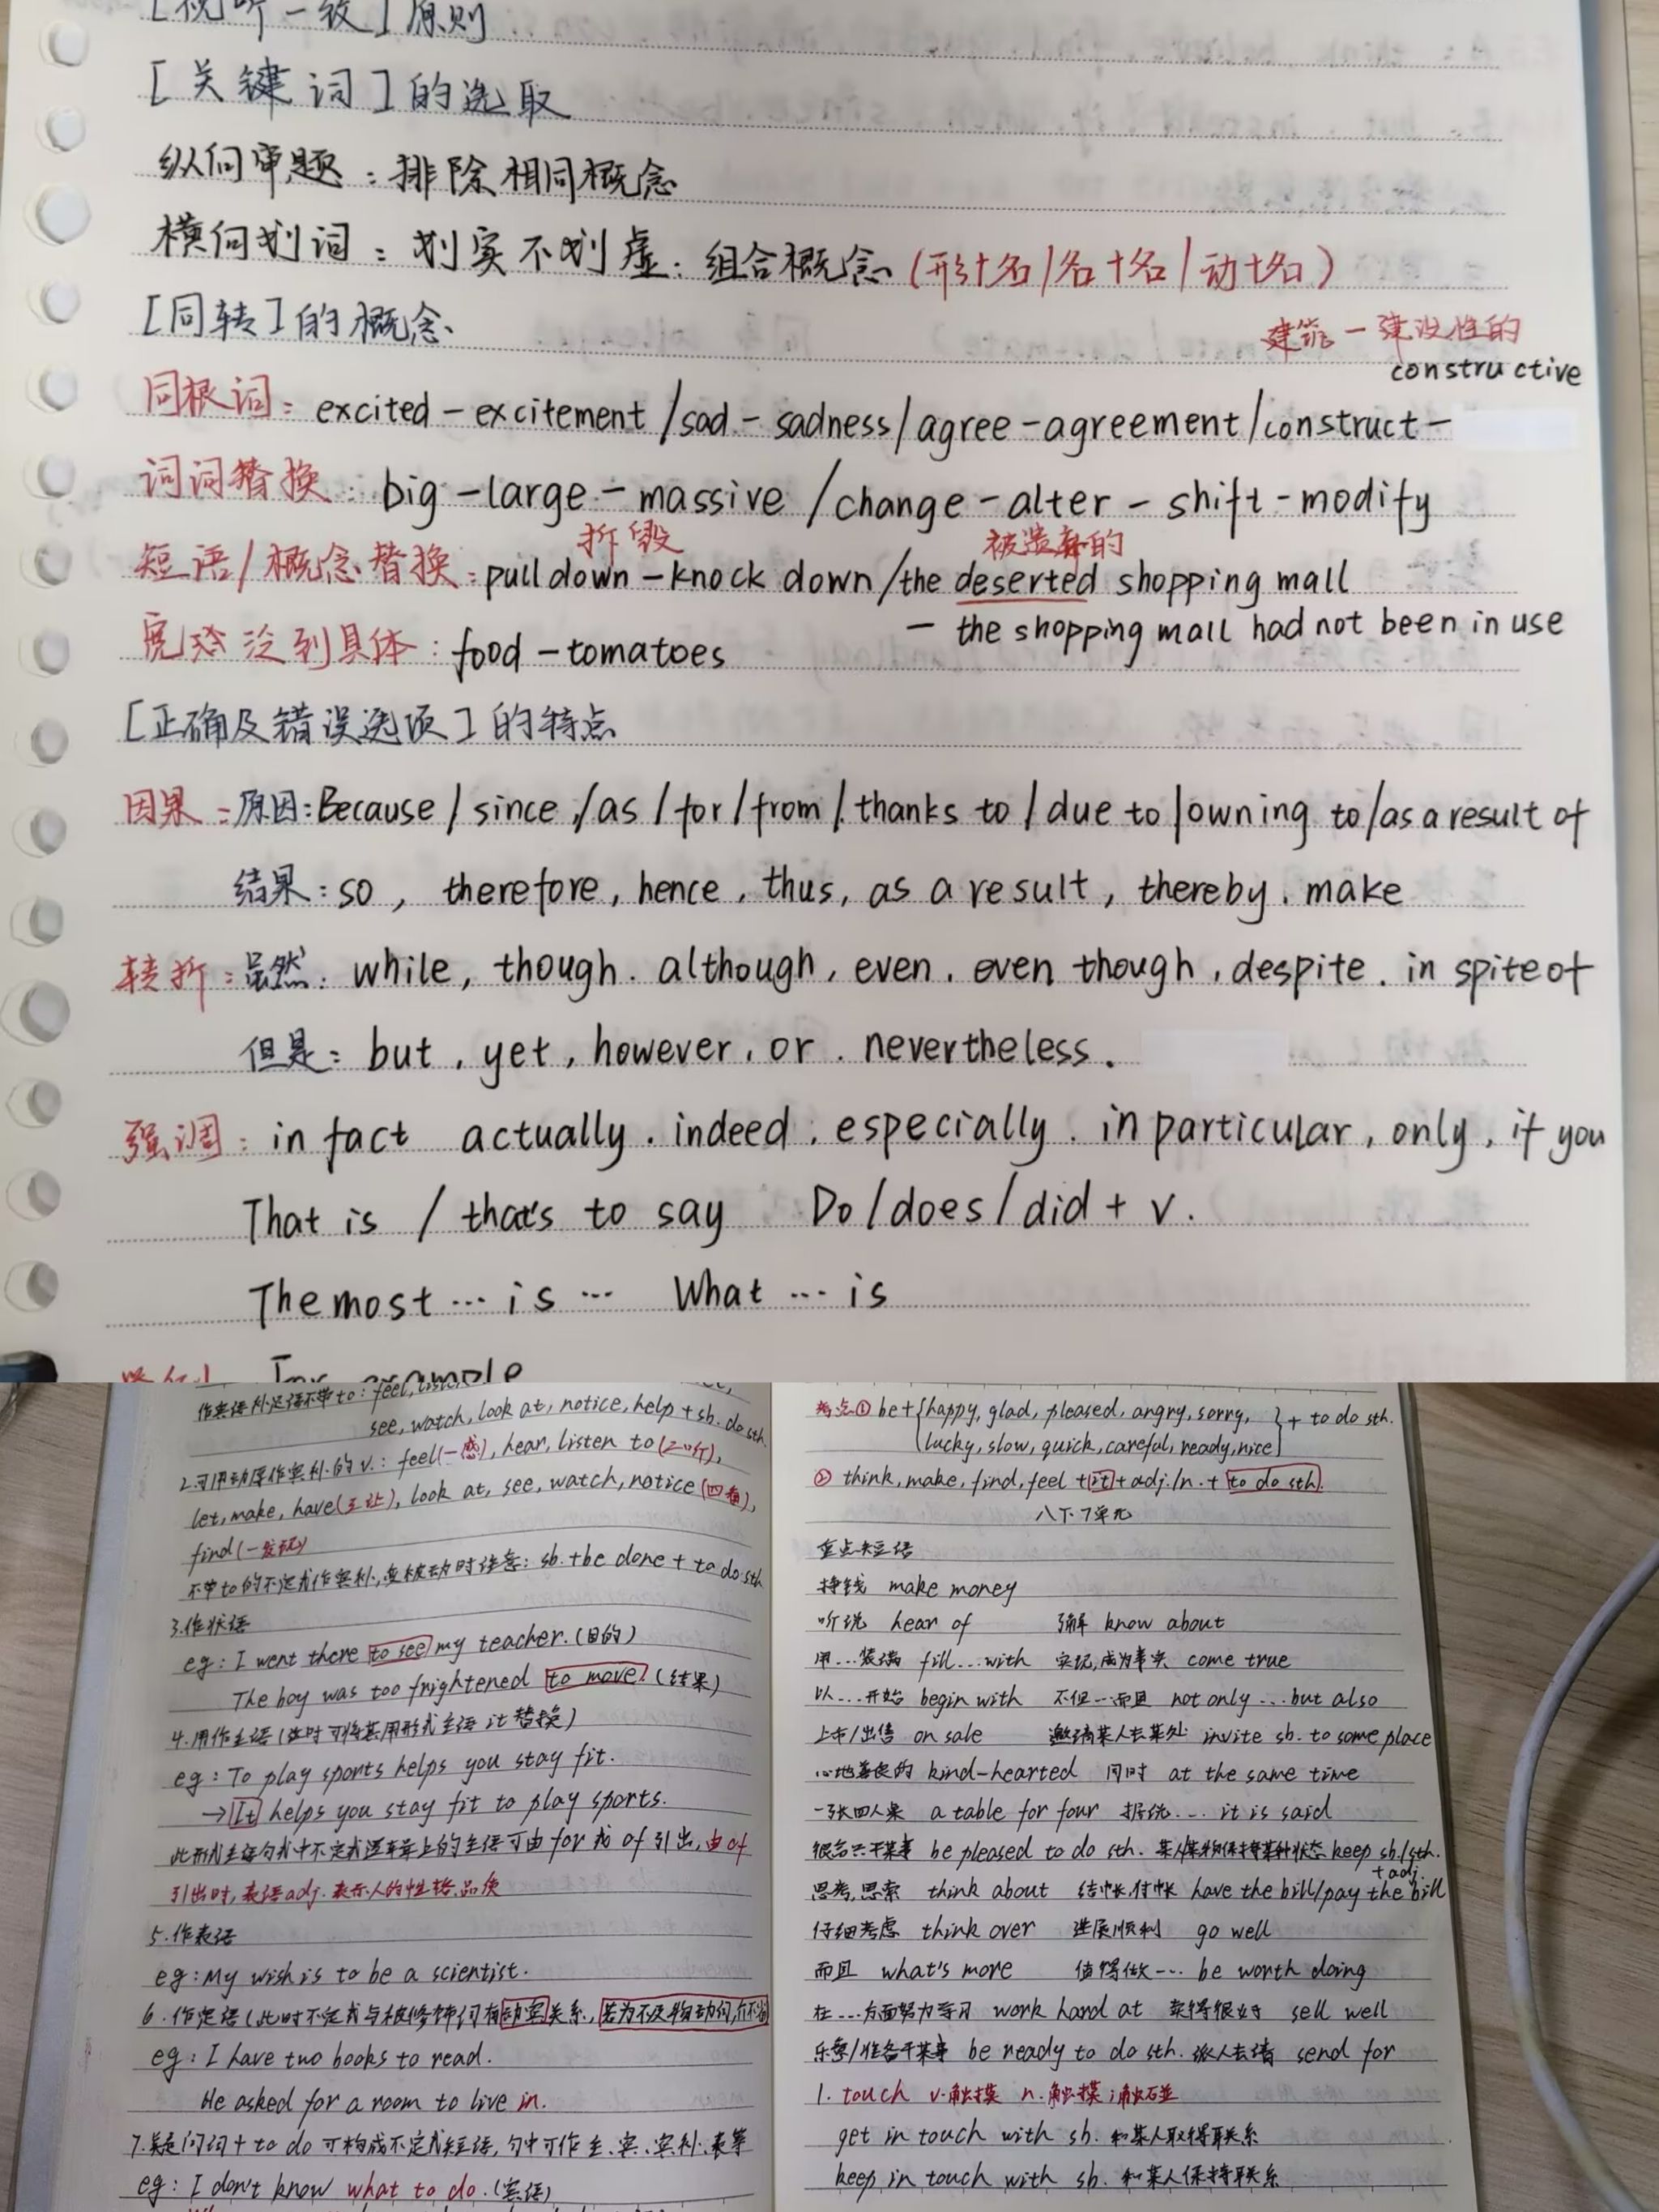 [视听一致]原则
[关键词]的选取
纵向审题：排除相同概念
横向划词：划实不划虚．组合概念(形+名/名+名/动+名)
[同转]的概念
建筑－建设性的
constructive
同根词：excited－excitement/sad－sadness/agree－agreement/construct－
词词替换：big－large－massive/change－alter－shift－modify
拆毁 被遗弃的
短语/概念替换：pull down－knock down/the deserted shopping mall
－the shopping mall had not been in use
宽泛到具体：food－tomatoes
[正确及错误选项]的特点
因果：原因：Because/since/as/for/from/thanks to/due to/owning to/as a result of
结果：so, therefore, hence, thus, as a result, thereby. make
转折：虽然：while, though. although, even. even though, despite. in spite of
但是：but, yet, however, or. nevertheless.
强调：in fact actually. indeed, especially. in particular, only, if you
That is / that's to say Do/does/did + v.
The most … is … What … is
For example
作宾语补足语不带to：feel,
see, watch, look at, notice, help + sb. do sth.
2.可用动原作宾补的v.：feel(一感), hear, listen to(二听),
let, make, have(三让), look at, see, watch, notice(四看),
find(一发现)
不带to的不定式作宾补,变被动时注意：sb. + be done + to do sth
3.作状语
eg：I went there to see my teacher.(目的)
The boy was too frightened to move.(结果)
4.用作主语(此时可将其用形式主语it替换)
eg：To play sports helps you stay fit.
→It helps you stay fit to play sports.
此形式主语句式中不定式逻辑上的主语可由for或of引出,由of
引出时,表语adj.表示人的性格品质
5.作表语
eg：My wish is to be a scientist.
6.作定语(此时不定式与被修饰词有动宾关系,若为不及物动词,介不省
eg：I have two books to read.
He asked for a room to live in.
7.疑问词+to do可构成不定式短语,句中可作主、宾、宾补、表等
eg：I don't know what to do.(宾语)
考点① be+{happy, glad, pleased, angry, sorry, }+ to do sth.
lucky, slow, quick, careful, ready, nice
② think, make, find, feel +it+ adj./n. + to do sth.
八下7单元
重点短语
挣钱 make money
听说 hear of 了解 know about
用…装满 fill…with 实现,成为事实 come true
以…开始 begin with 不但…而且 not only…but also
上市/出售 on sale 邀请某人去某处 invite sb. to some place
心地善良的 kind-hearted 同时 at the same time
一张四人桌 a table for four 据说… it is said
很高兴干某事 be pleased to do sth. 某人/某物保持某种状态 keep sb./sth.
+ adj.
思考,思索 think about 结帐,付帐 have the bill/pay the bill
仔细考虑 think over 进展顺利 go well
而且 what's more 值得做… be worth doing
在…方面努力学习 work hard at 卖得很好 sell well
乐意/准备干某事 be ready to do sth. 派人去请 send for
1. touch v.触摸 n.触摸;触碰
get in touch with sb. 和某人取得联系
keep in touch with sb. 和某人保持联系